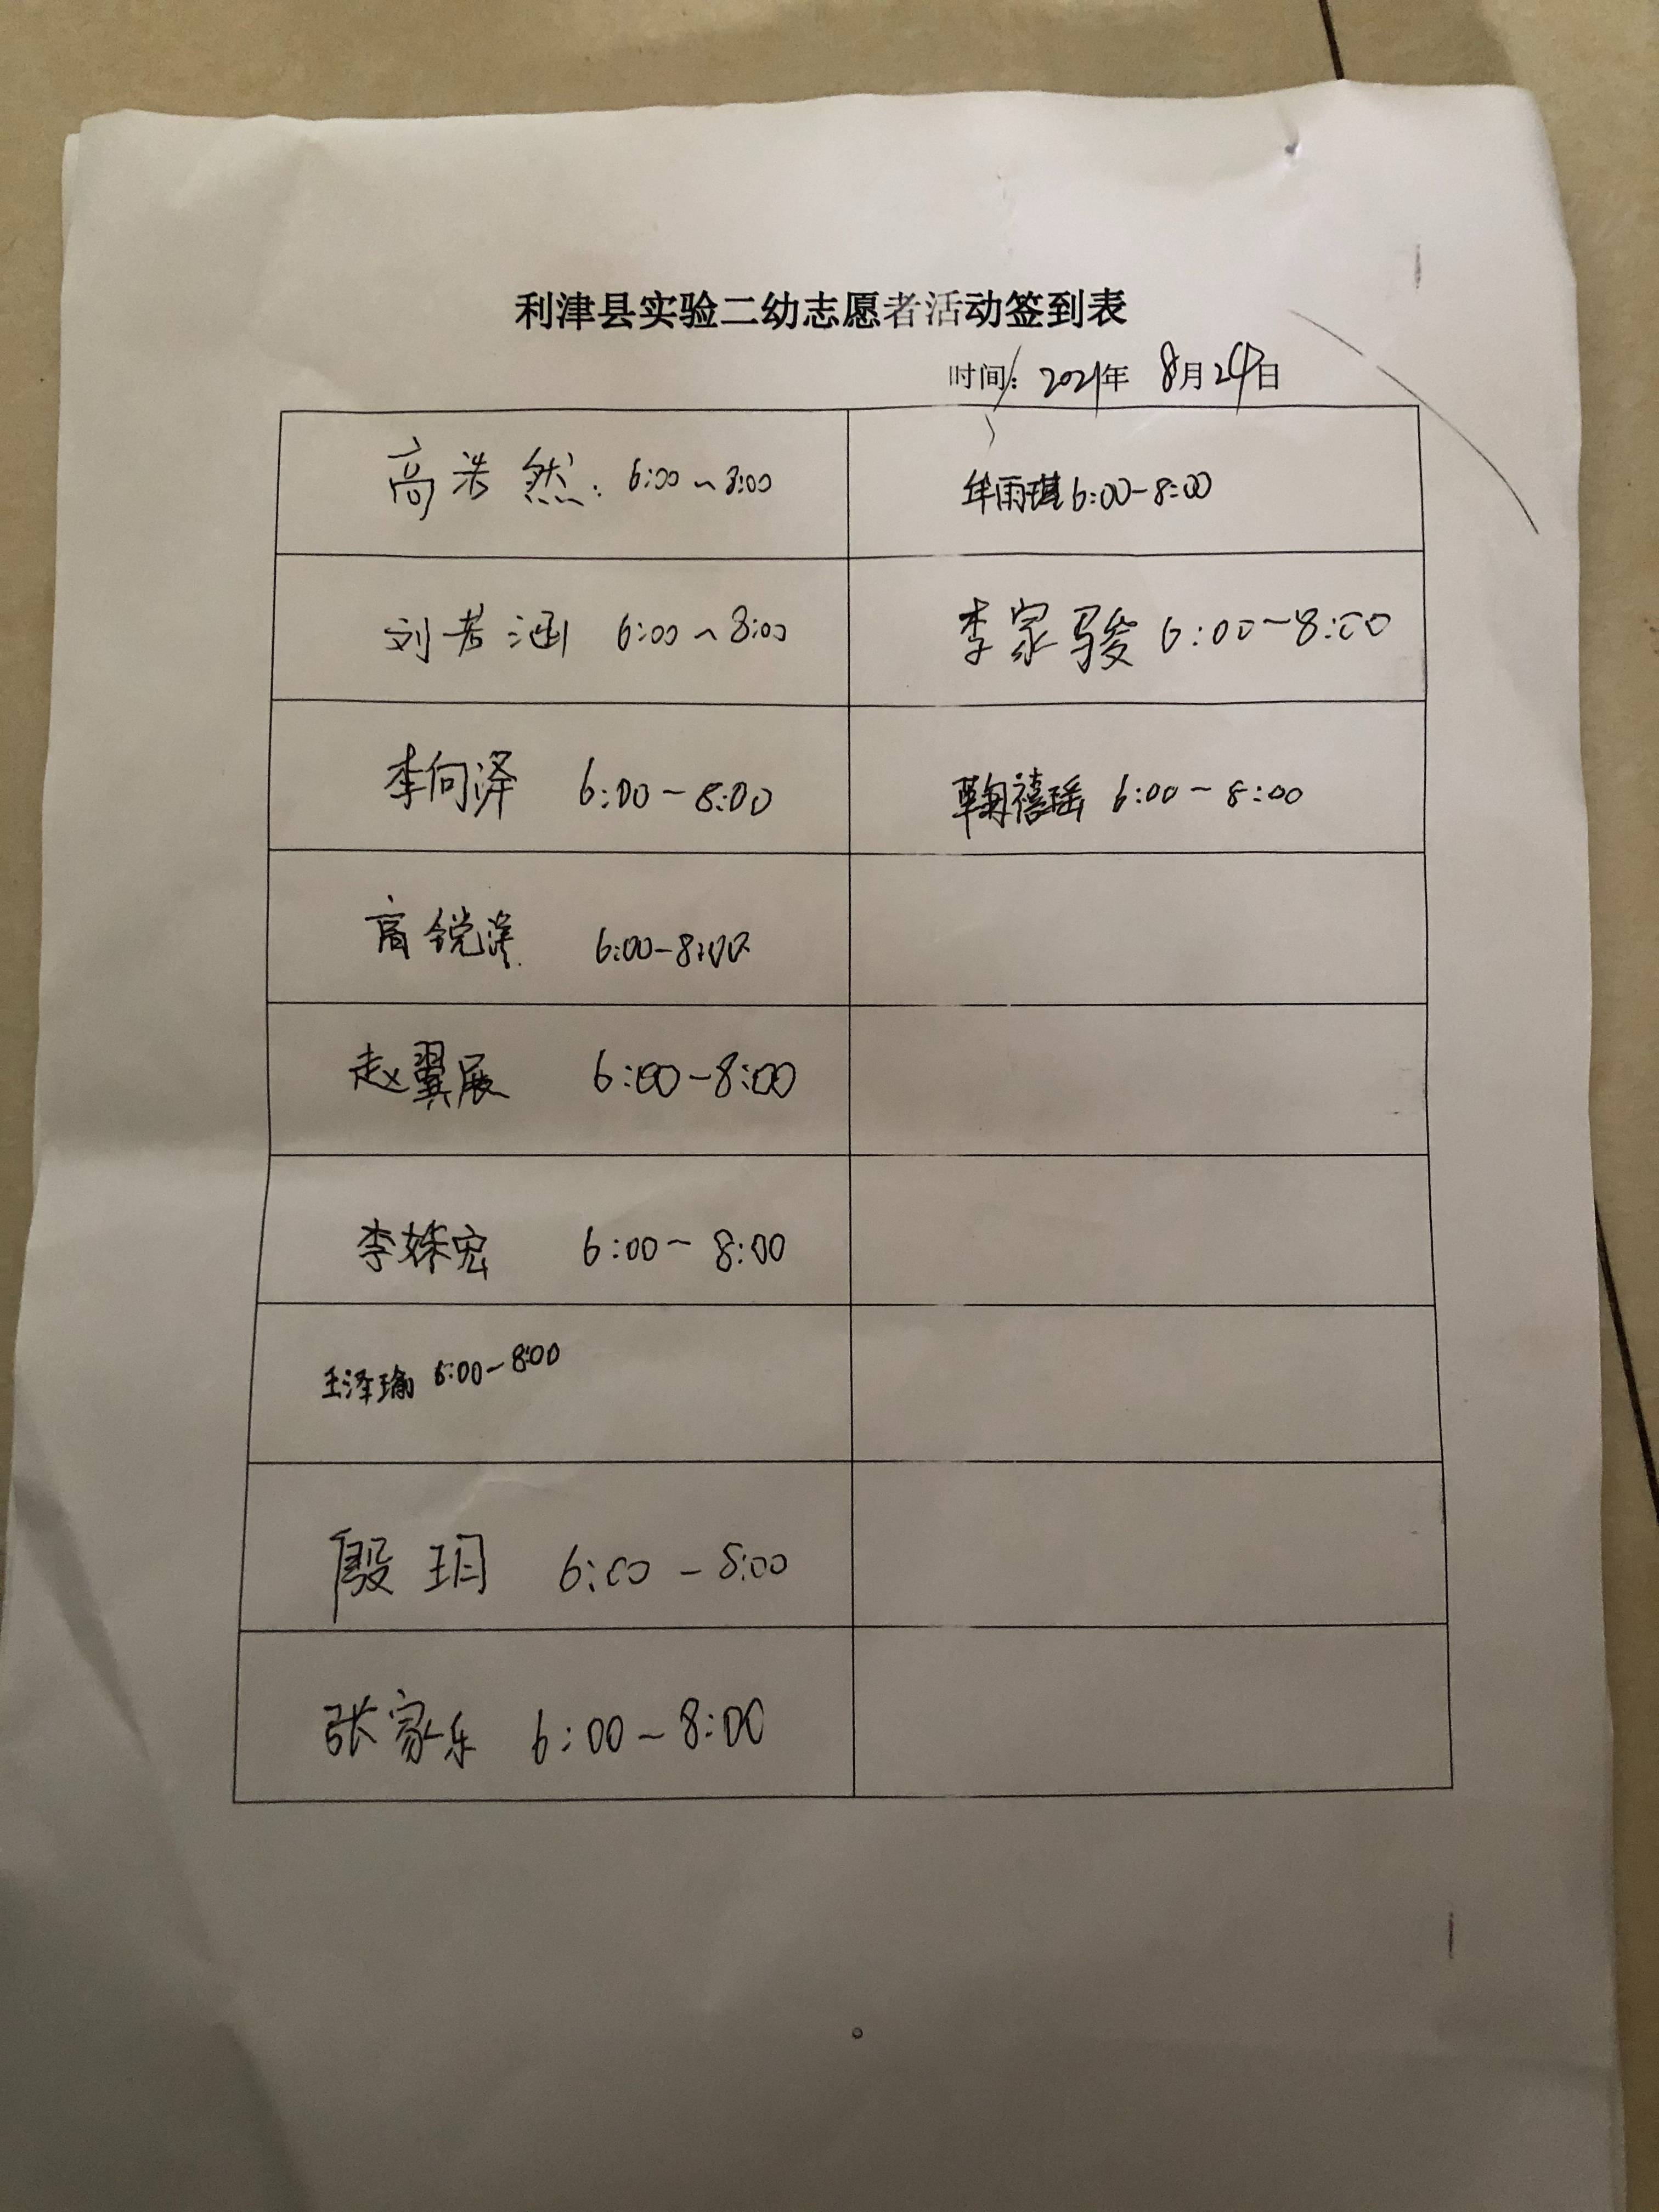 利津县实验二幼志愿者活动签到表
时间: 2021年 8月24日
高浩然: 6:00~8:00
牟雨琪 6:00-8:00
刘若涵 6:00~8:00
李家骏 6:00~8:00
李向泽 6:00-8:00
鞠禧瑶 6:00-8:00
高锐 6:00-8:00
赵翼展 6:00-8:00
李姝宏 6:00~8:00
王泽瑜 6:00-8:00
殷玥 6:00-8:00
张家乐 6:00-8:00